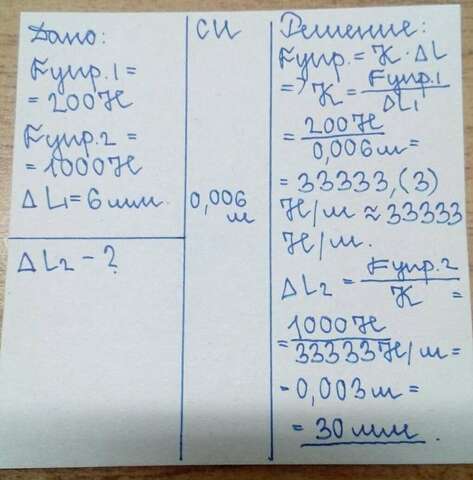 Дано:
Fупр.1 =
= 200 Н
Fупр.2 =
= 1000 Н
ΔL₁ = 6 мм.
ΔL₂ - ?
СИ
0,006
м
Решение:
Fупр. = K · ΔL
=> K = Fупр.1 / ΔL₁
= 200 Н / 0,006 м =
= 33333,(3)
Н/м ≈ 33333
Н/м.
ΔL₂ = Fупр.2 / K =
= 1000 Н / 33333 Н/м =
= 0,003 м =
= 30 мм.